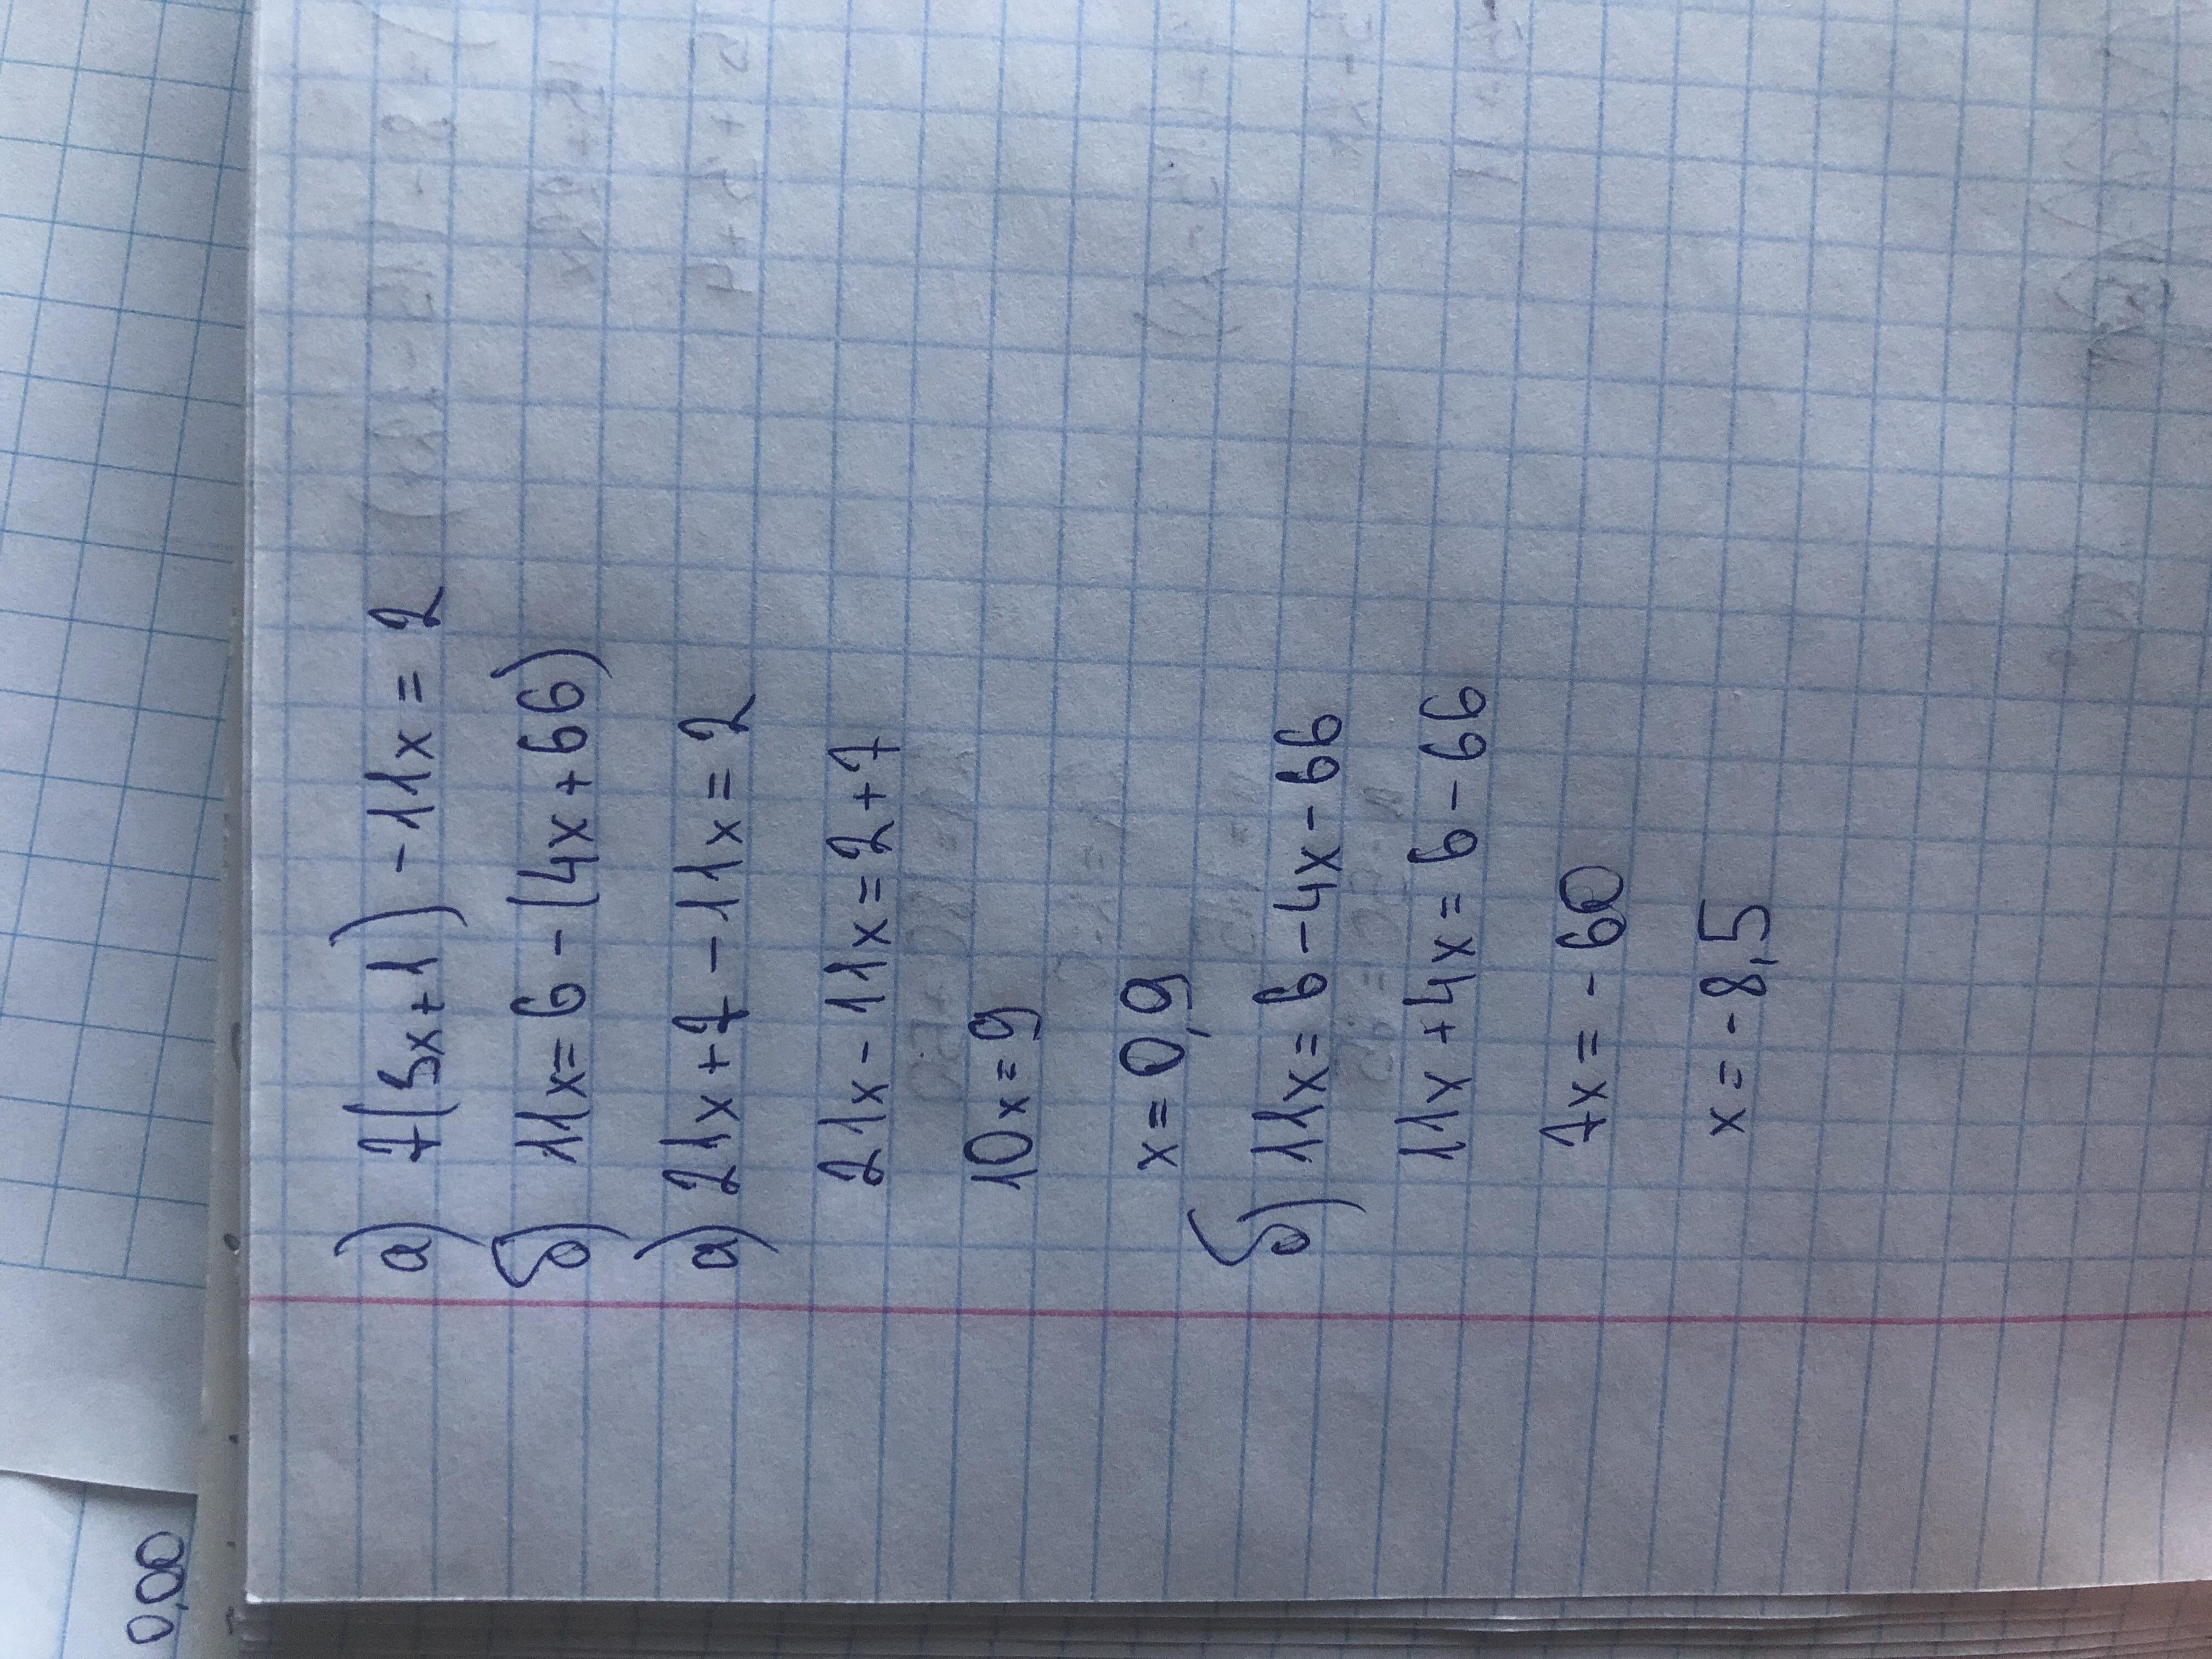 а) 7(3x+1)-11x=2
б) 11x=6-(4x+66)
а) 21x+7-11x=2
21x-11x=2+7
10x=9
x=0,9
б) 11x=6-4x-66
11x+4x=6-66
7x=-60
x=-8,5
0,00